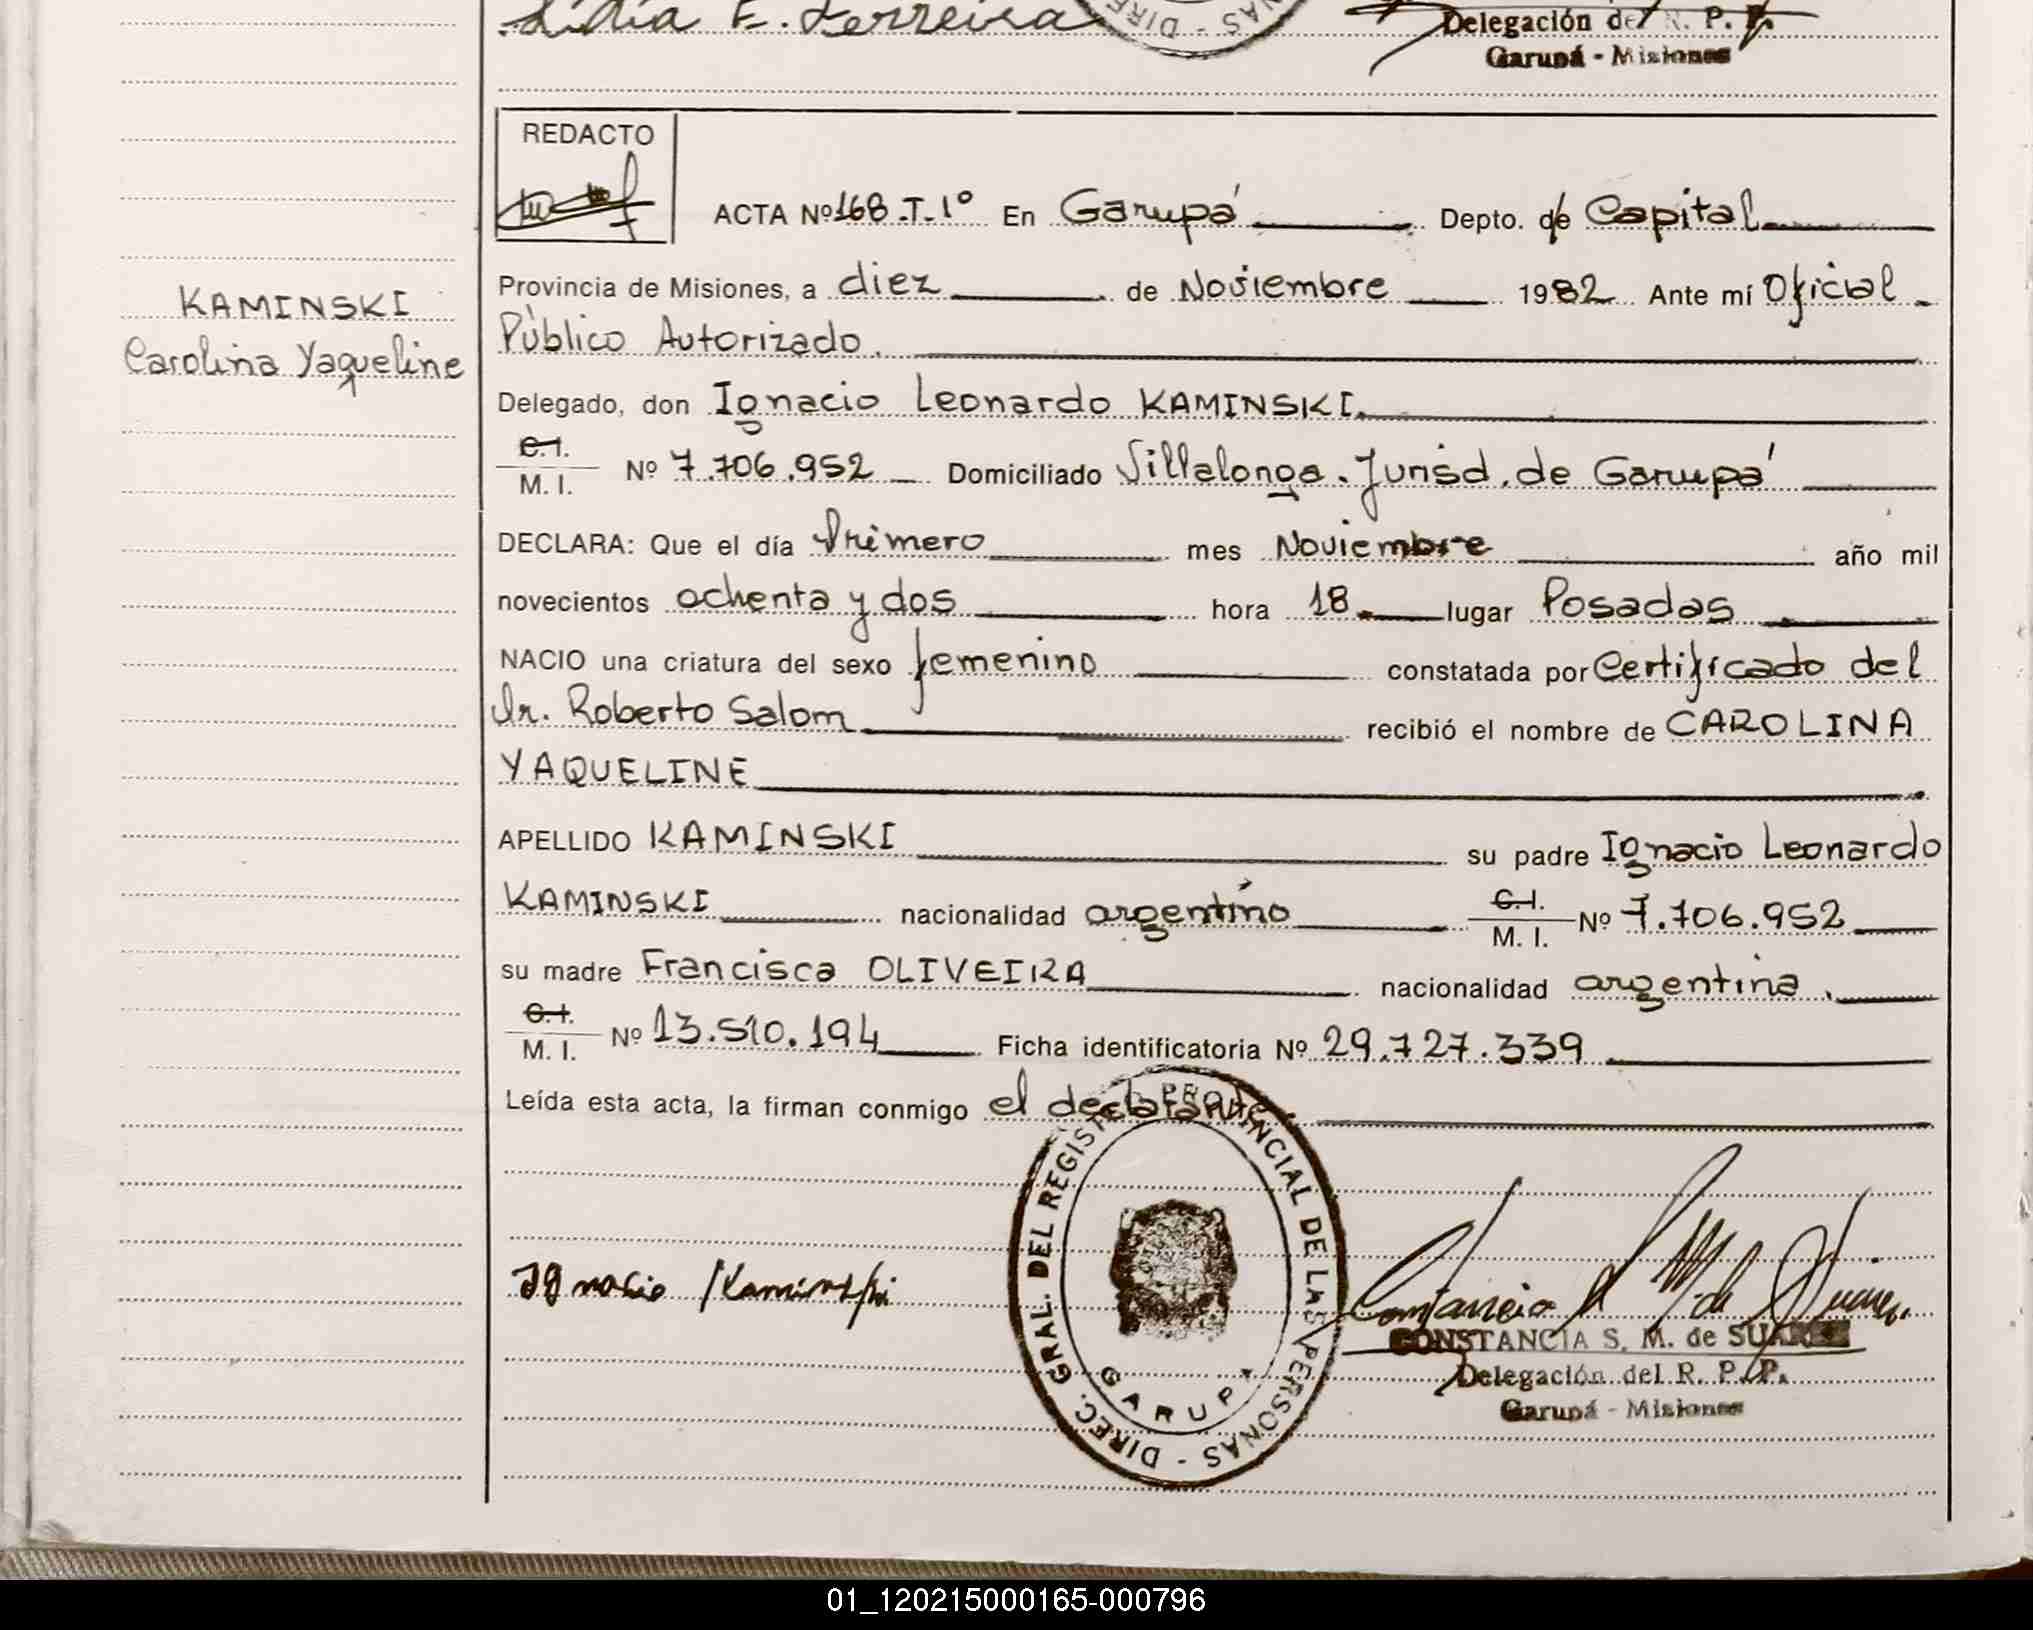 Lidia E. Ferreira
Delegación del R. P. P.
Garupá - Misiones
REDACTO
ACTA Nº 168.T.1º En Garupá Depto. de Capital
Provincia de Misiones, a diez de Noviembre 1982 Ante mí Oficial
Público Autorizado.
KAMINSKI
Carolina Yaqueline
Delegado, don Ignacio Leonardo KAMINSKI.
C.I.
M. I. Nº 7.706.952 Domiciliado Villalonga. Jurisd. de Garupá
DECLARA: Que el día Primero mes Noviembre año mil
novecientos ochenta y dos hora 18. lugar Posadas
NACIO una criatura del sexo femenino constatada por Certificado del
Dr. Roberto Salom recibió el nombre de CAROLINA
YAQUELINE
APELLIDO KAMINSKI su padre Ignacio Leonardo
KAMINSKI nacionalidad argentino C.I. M. I. Nº 7.706.952
su madre Francisca OLIVEIRA nacionalidad argentina.
C.I.
M. I. Nº 13.510.194 Ficha identificatoria Nº 29.727.339
Leída esta acta, la firman conmigo el declarante.
DIREC. GRAL. DEL REGISTRO PROVINCIAL DE LAS PERSONAS -
GARUPA
Ignacio Kaminski
CONSTANCIA S. M. de SUAREZ
Delegación del R. P. P.
Garupá - Misiones
01_120215000165-000796